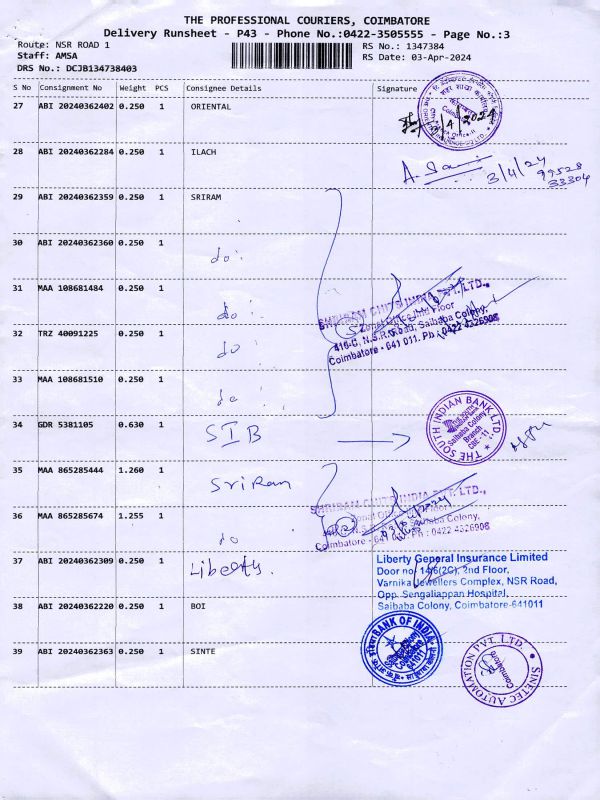 THE PROFESSIONAL COURIERS, COIMBATORE
Delivery Runsheet - P43 - Phone No.:0422-3505555 - Page No.:3
Route: NSR ROAD 1
RS No.: 1347384
Staff: AMSA
RS Date: 03-Apr-2024
DRS No.: DCJB134738403
S No Consignment No Weight PCS Consignee Details Signature
27 ABI 20240362402 0.250 1 ORIENTAL
28 ABI 20240362284 0.250 1 ILACH
3/4/24
99528
33304
29 ABI 20240362359 0.250 1 SRIRAM
30 ABI 20240362360 0.250 1 do:
31 MAA 108681484 0.250 1 do:
SHRIRAM CHITS INDIA PVT. LTD.,
Zonal Office 2nd Floor
32 TRZ 40091225 0.250 1 do:
416-C, N.S.R. Road, Saibaba Colony,
Coimbatore - 641 011. Ph : 0422 4326908
33 MAA 108681510 0.250 1 do:
34 GDR 5381105 0.630 1 SIB
THE SOUTH INDIAN BANK LTD.
Saibaba Colony
Branch
CBE - 11
35 MAA 865285444 1.260 1 Sriram
SHRIRAM CHITS INDIA PVT. LTD.,
36 MAA 865285674 1.255 1 do
Saibaba Colony,
Coimbatore - Ph : 0422 4326908
37 ABI 20240362309 0.250 1 Liberty.
Liberty General Insurance Limited
Door no. 14/6(2C), 2nd Floor,
Varnika Jewellers Complex, NSR Road,
Opp. Sengaliappan Hospital,
Saibaba Colony, Coimbatore-641011
38 ABI 20240362220 0.250 1 BOI
BANK OF INDIA
Saibaba Colony
Coimbatore
641011
39 ABI 20240362363 0.250 1 SINTE
SINETEC AUTOMATION PVT. LTD.
Coimbatore